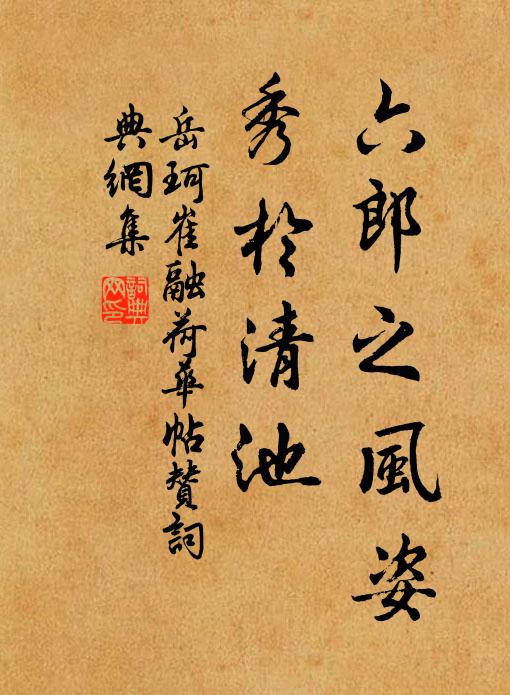 六郎之風姿
秀於清池
岳珂崔融荷華帖贊詞
典網集
詞典
网印